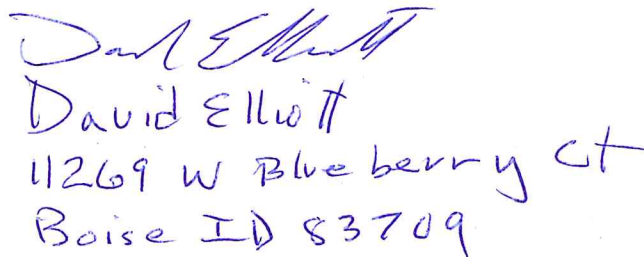 David Elliott
David Elliott
11269 W Blueberry Ct
Boise ID 83709